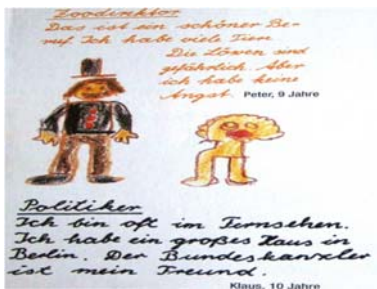 Zoodirektor
Das ist ein schöner Be-
ruf. Ich habe viele Tiere.
Die Löwen sind
gefährlich. Aber
ich habe keine
Angst. Peter, 9 Jahre
Politiker
Ich bin oft im Fernsehen.
Ich habe ein großes Haus in
Berlin. Der Bundeskanzler
ist mein Freund.
Klaus, 10 Jahre